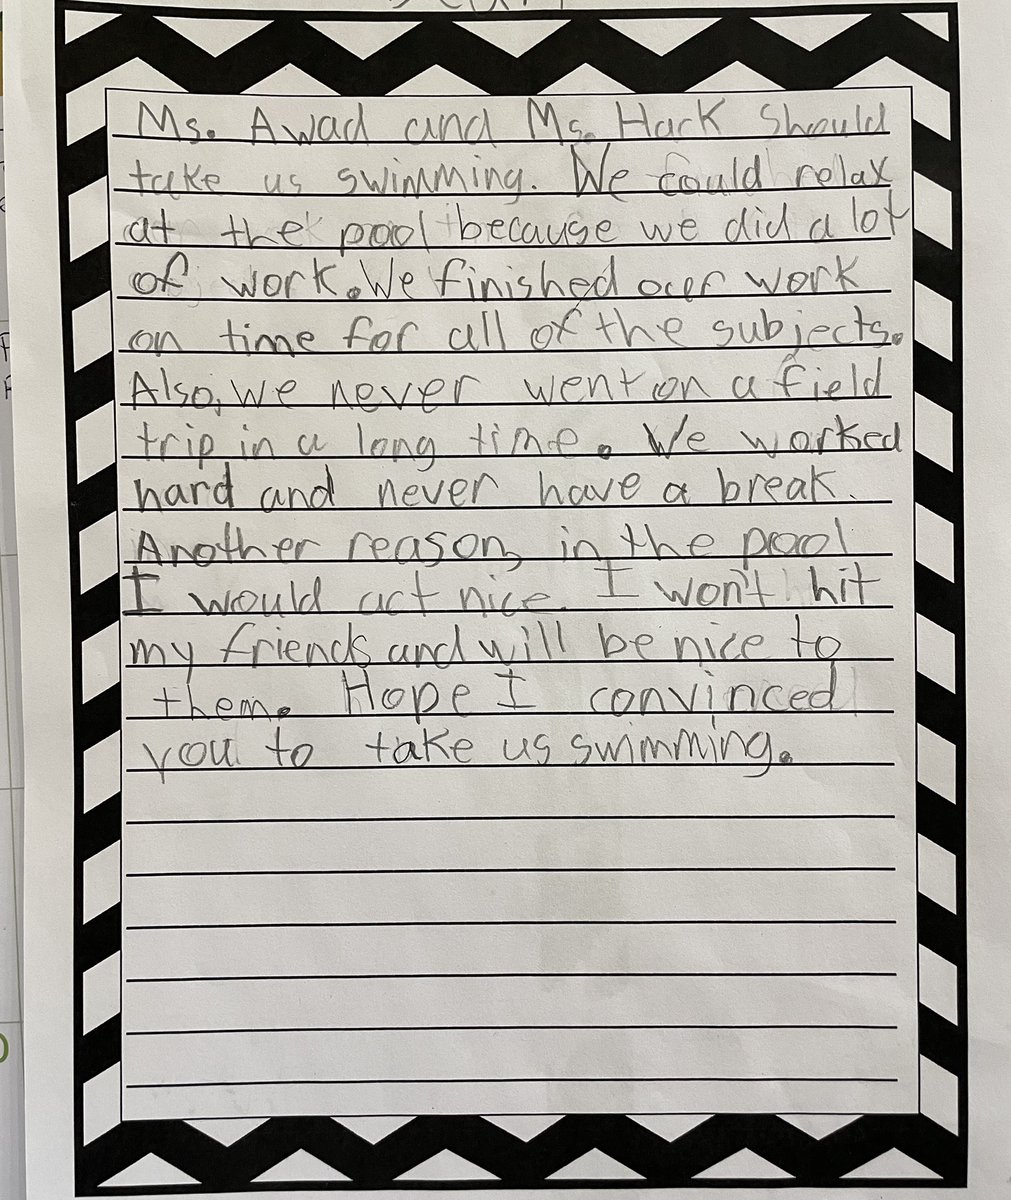 Ms. Awad and Ms. Hack should
take us swimming. We could relax
at the pool because we did a lot
of work. We finished ouer work
on time for all of the subjects.
Also, we never went on a field
trip in a long time. We worked
hard and never have a break.
Another reason, in the pool
I would act nice. I won't hit
my friends and will be nice to
them. Hope I convinced
you to take us swimming.